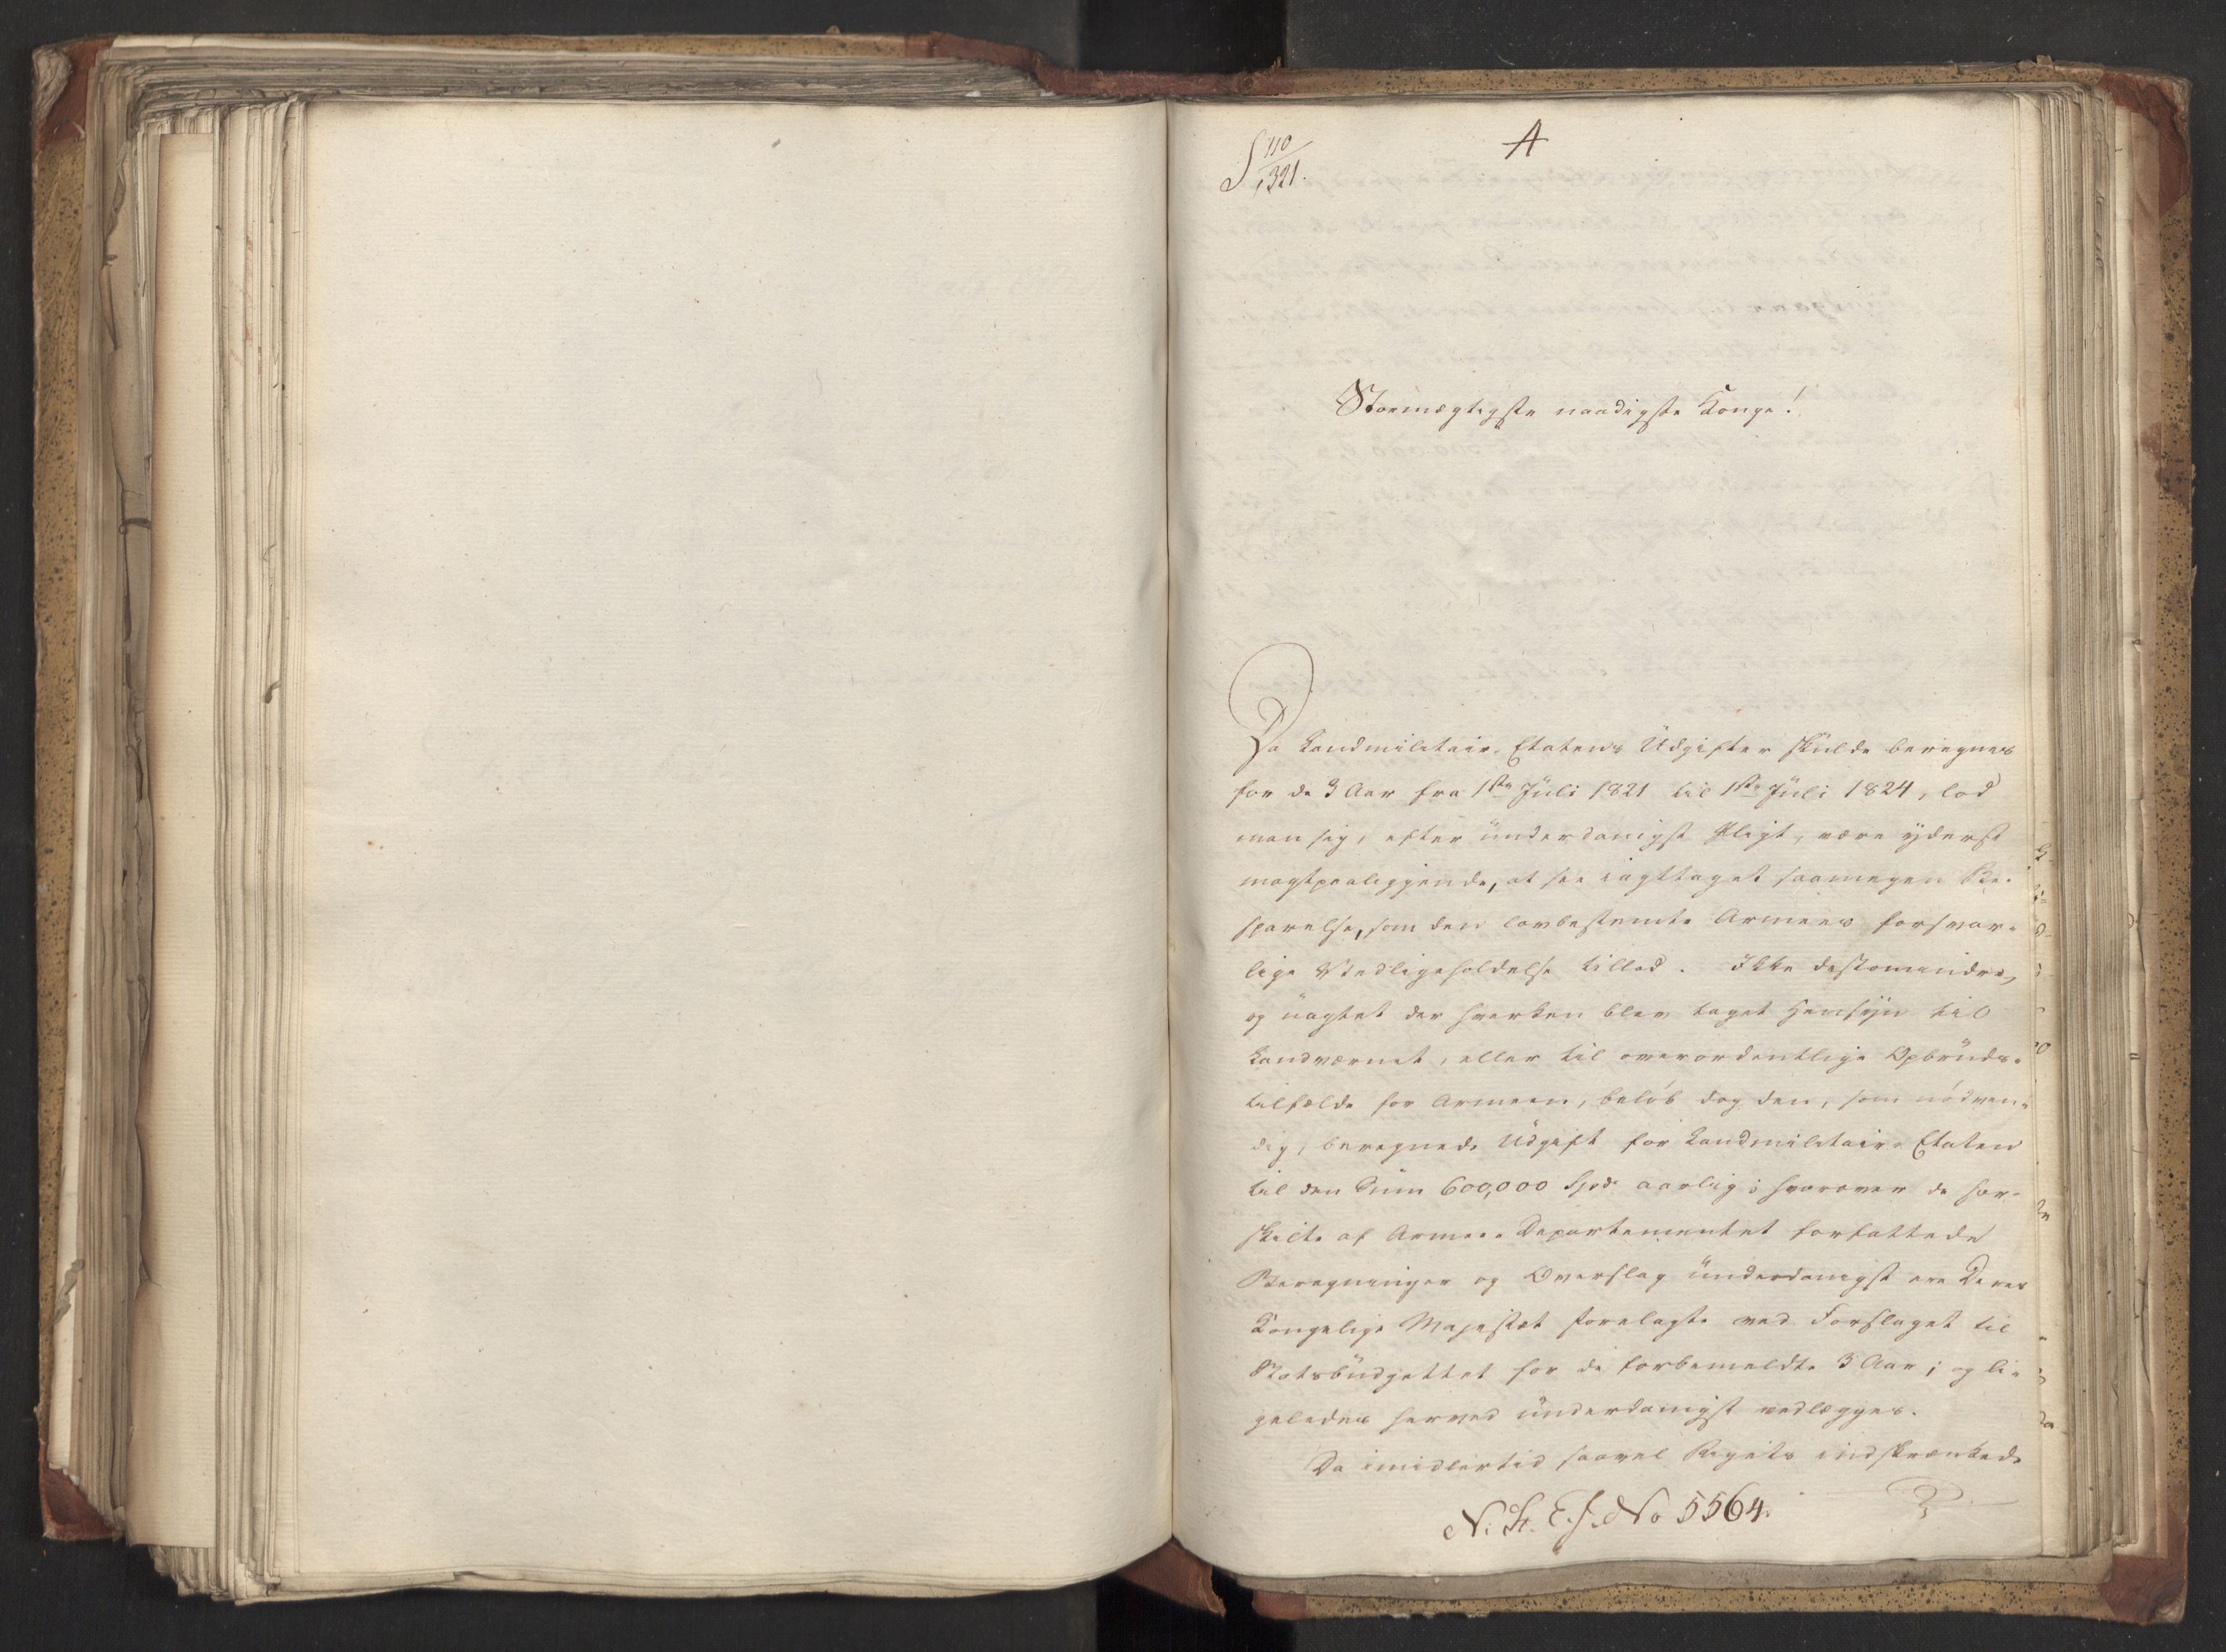 S 110/1321.
A
Stormægtigste naadigste Konge!
Da Landmilitair-Etatens Udgifter skulde beregnes
for de 3 Aar fra 1ste Juli 1821 til 1ste Juli 1824, lod
man sig, efter underdanigst Pligt, være yderst
magtpaaliggende, at see iagttaget saamegen Be-
sparelse, som den lovbestemte Armees forsvar-
lige Vedligeholdelse tillod. Ikke destomindre,
og uagtet der hverken blev taget Hensyn til
Landværnet, eller til overordentlige Opbruds-
tilfælde for Armeen, beløb dog den, som nødven-
dig, beregnede Udgift for Landmilitair-Etaten
til den Sum 600,000 Spd aarlig; hvorover de for-
skilte af Armee-Departementet forfattede
Beregninger og Overslag underdanigst ere Deres
Kongelige Majestæt forelagte med Forslaget til
Statsbudgettet for de forbemeldte 3 Aar; og li-
geledes herved underdanigst vedlægges.
Da imidlertid saavel Rigets indskrænkede
N. St. E. J. No 5564.